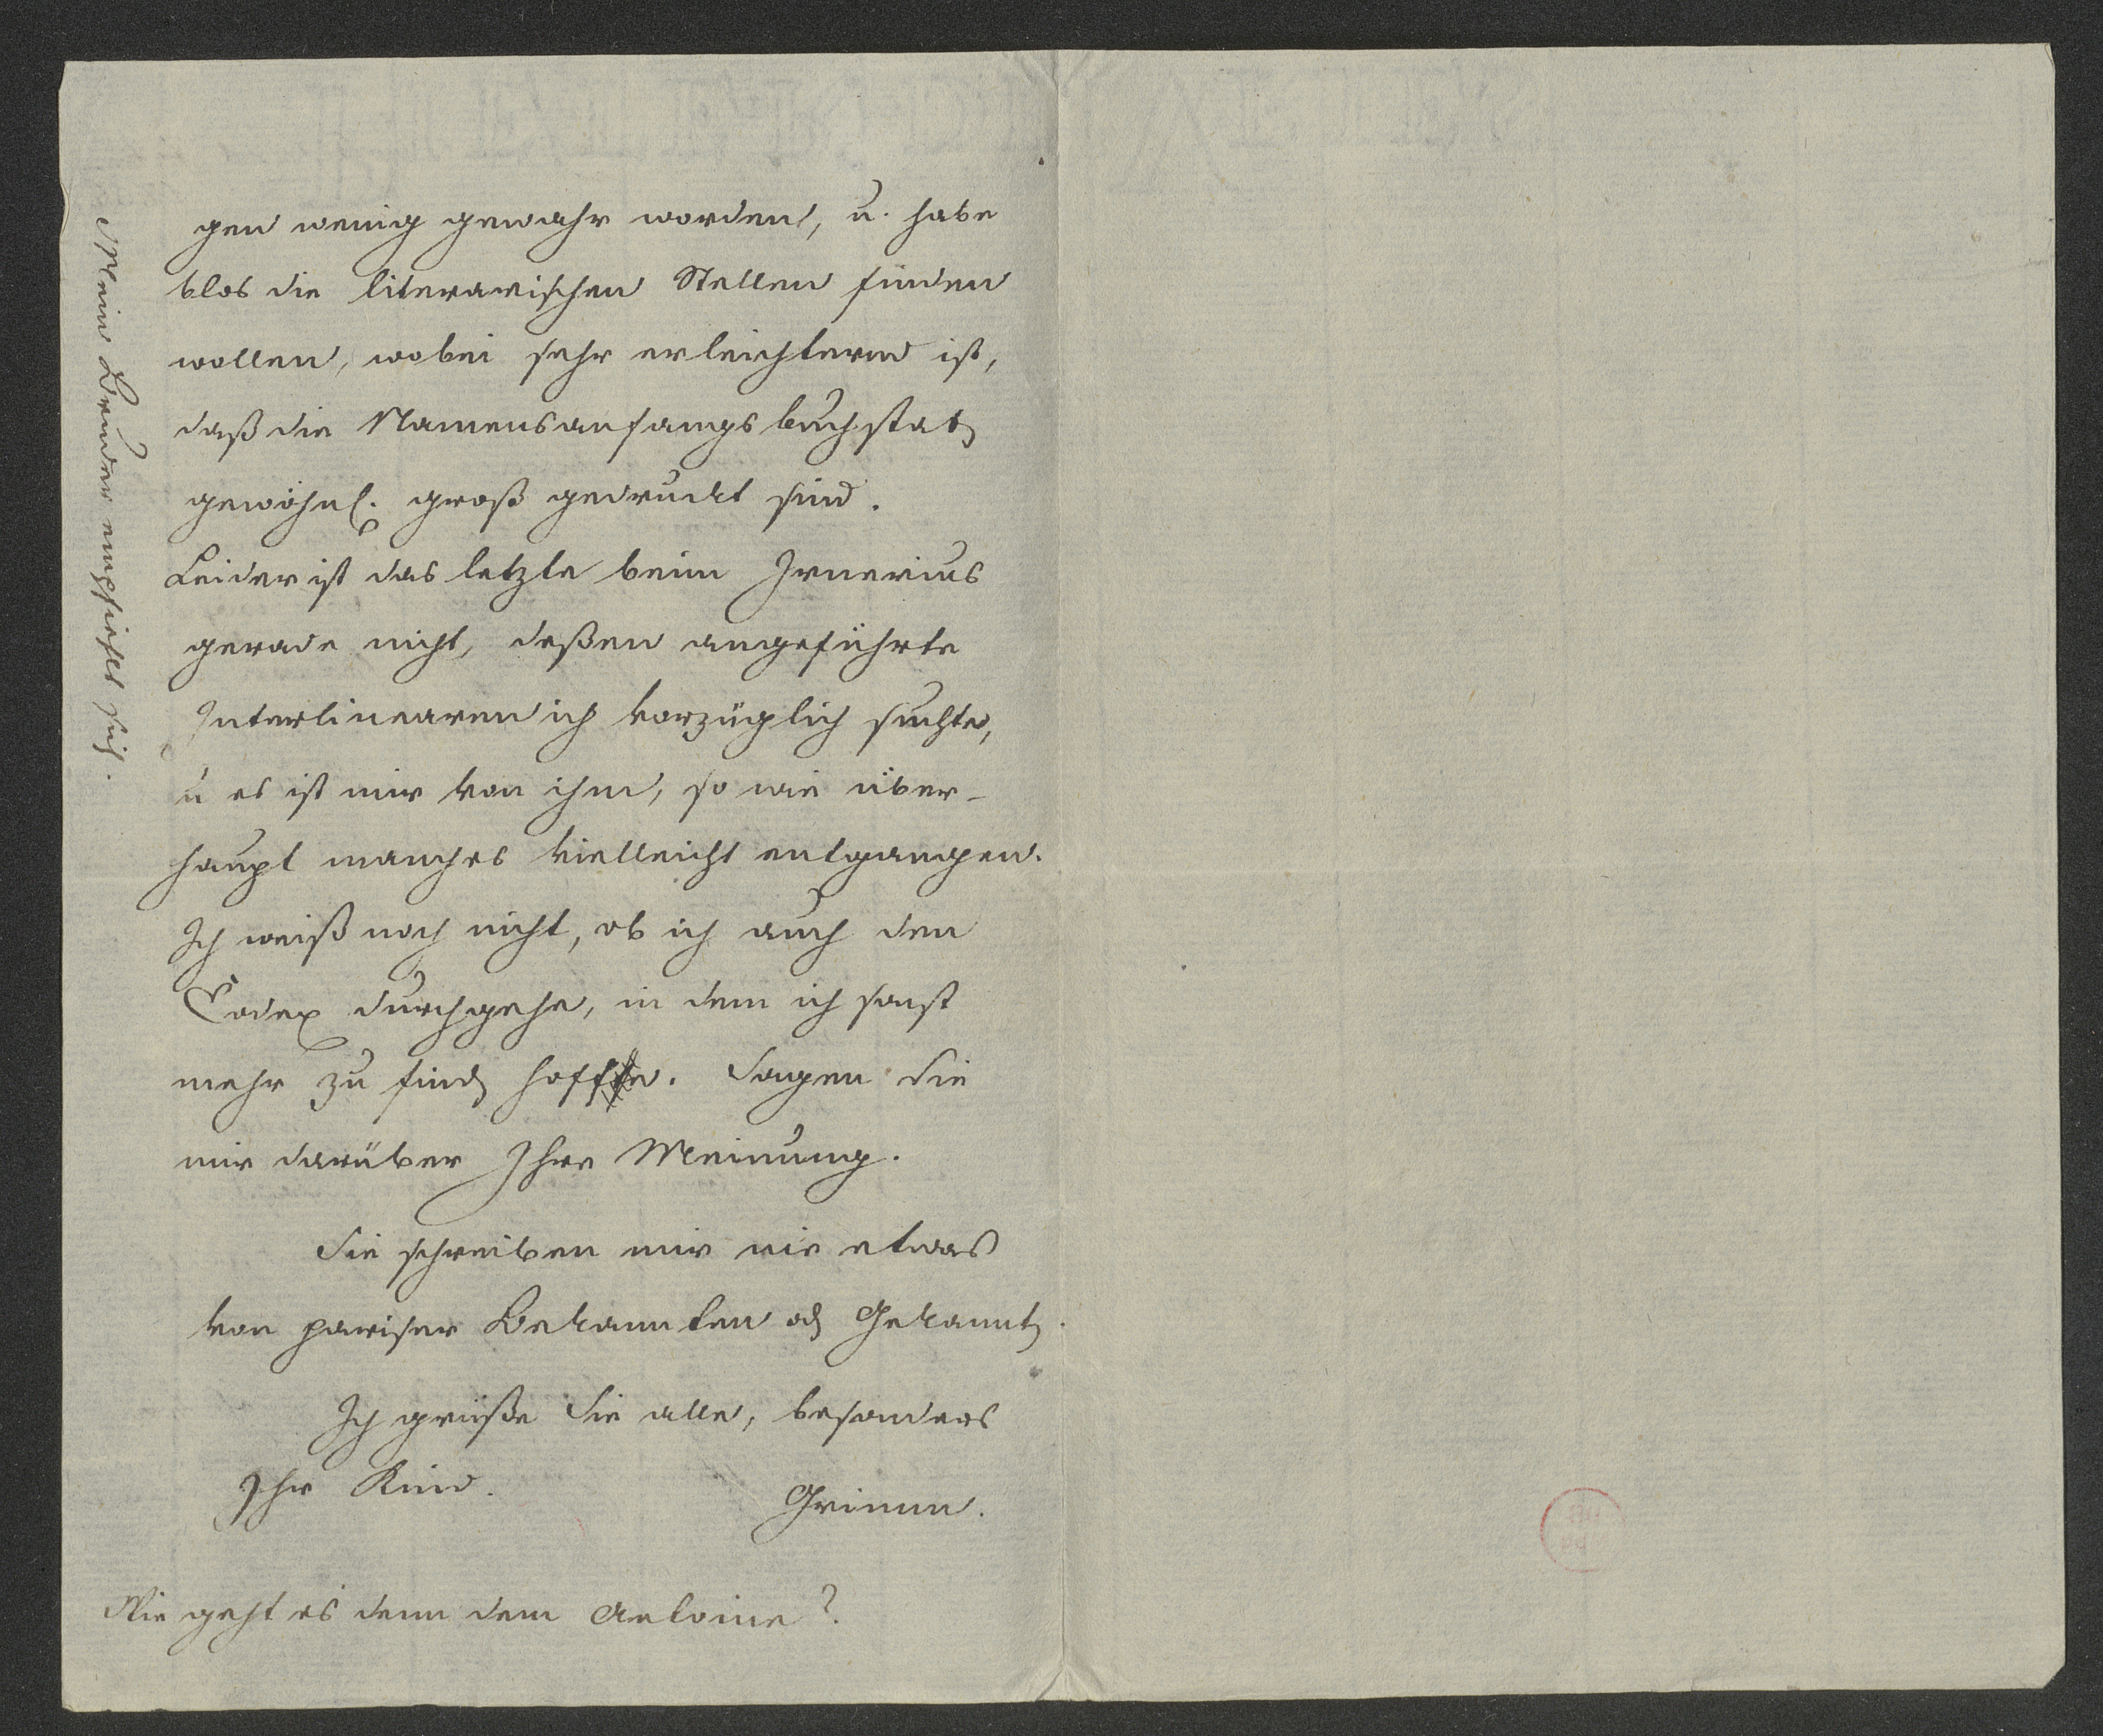 gen wenig gewahr worden, u. habe
blos die literarischen Stellen finden
wollen, wobei sehr erleichternd ist,
daß die Namensanfangsbuchstab
gewöhnl. groß gedruckt sind.
Leider ist das letzte beim Irnerius
gerade nicht, deßen angeführte
Interlinearen ich vorzüglich suchte,
u es ist mir von ihm, so wie über-
haupt manches vielleicht entgangen.
Ich weiß noch nicht, ob ich auch den
Codex durchgehe, in dem ich sonst
mehr zu find hoffe. Sagen Sie
mir darüber Ihre Meinung.
Sie schreiben mir nie etwas
von pariser Bekannten od Gekannt.
Ich grüße Sie alle, besonders
Ihr Kind.
Grimm.
Wie geht es denn dem Antoine?
Mein Bruder empfiehlt sich.